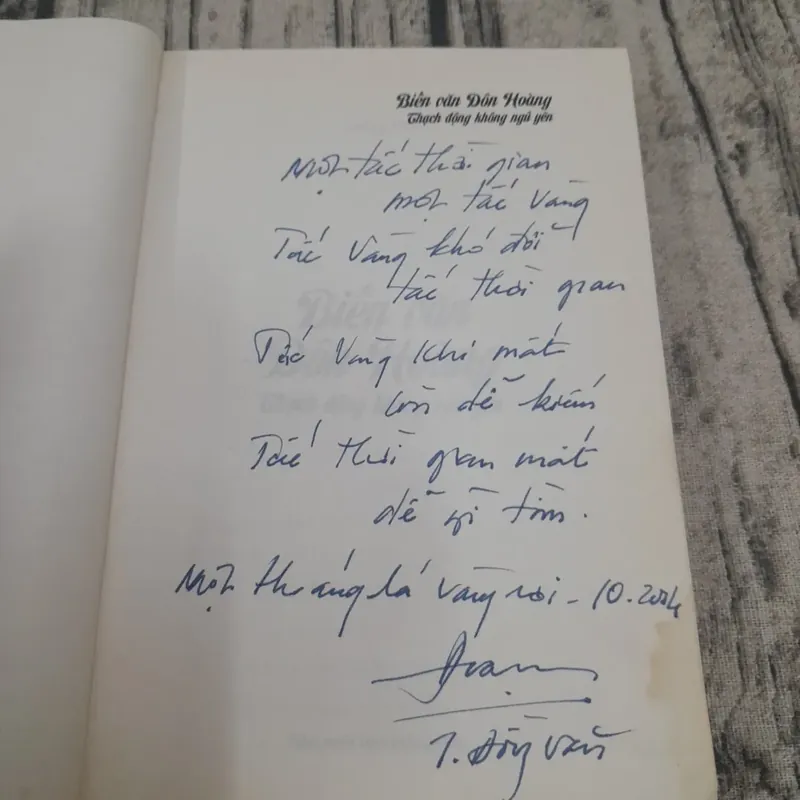 Biến văn Đôn Hoàng
Thạch động không ngủ yên
Một tấc thời gian
một tấc vàng
Tấc vàng khó đổi
tấc thời gian
Tấc vàng khi mất
còn dễ kiếm
Tấc thời gian mất
dễ gì tìm.
Một tháng lá vàng rơi - 10.2004
T. Đồng Văn